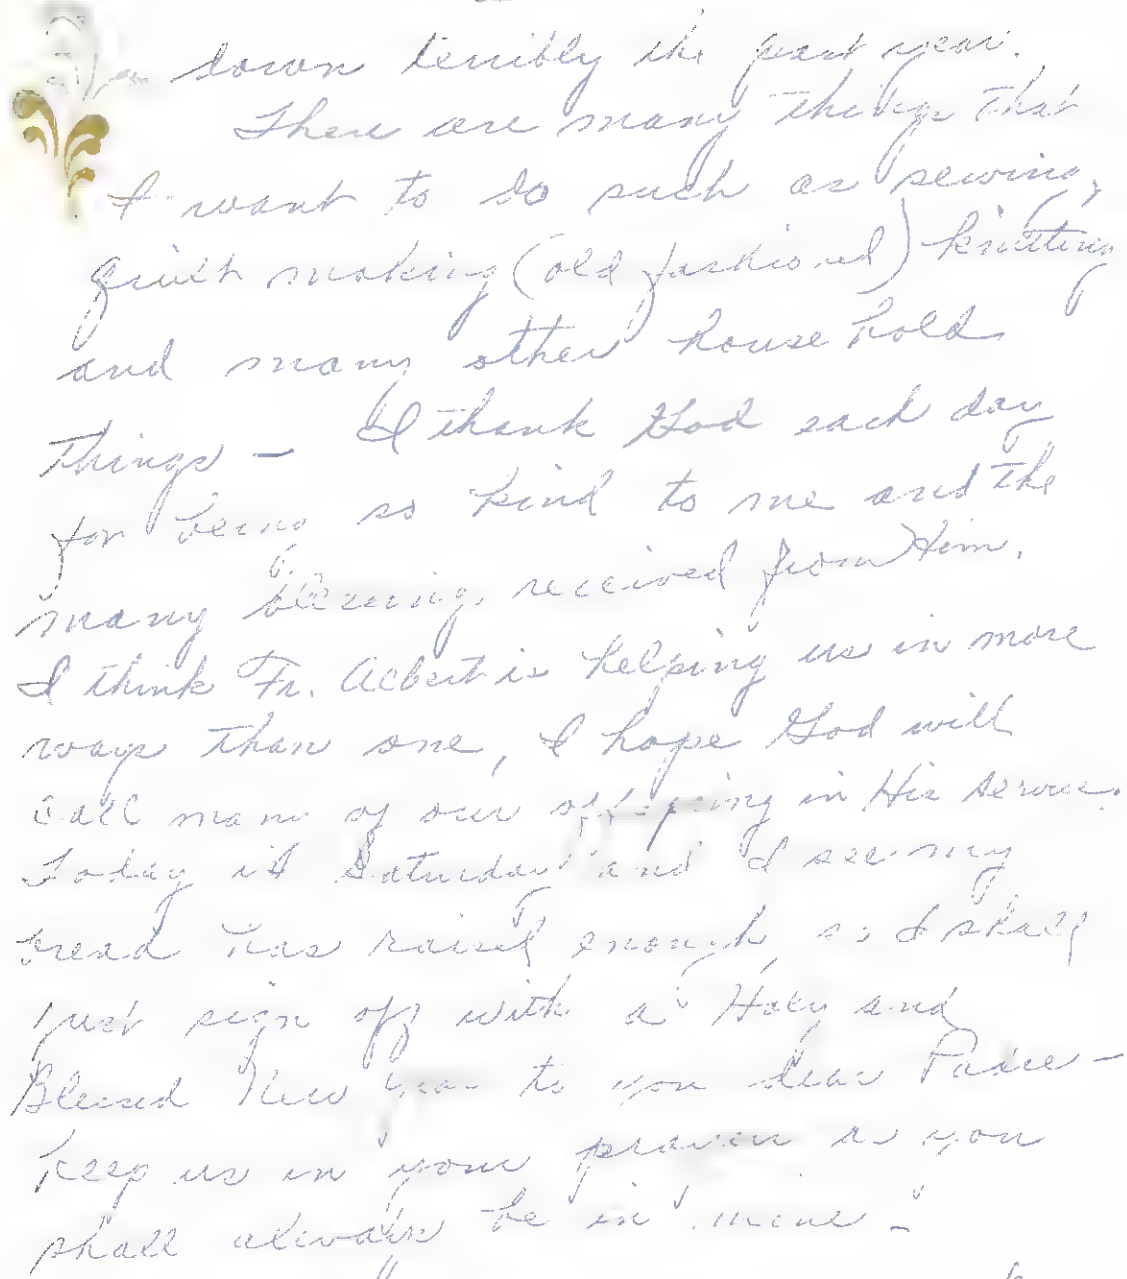 down terribly the past year.
There are many things that
I want to do such as sewing,
quilt making (old fashioned) knitting
and many other household
things — I thank God each day
for being so kind to me and the
many blessings received from Him.
I think Fr. Albert is helping us in more
ways than one, I hope God will
call many of our offspring in His service.
Today is Saturday and I see my
bread has raised enough, so I shall
just sign off with a Holy and
Blessed New Year to you dear Padre —
Keep us in your prayers as you
shall always be in mine —